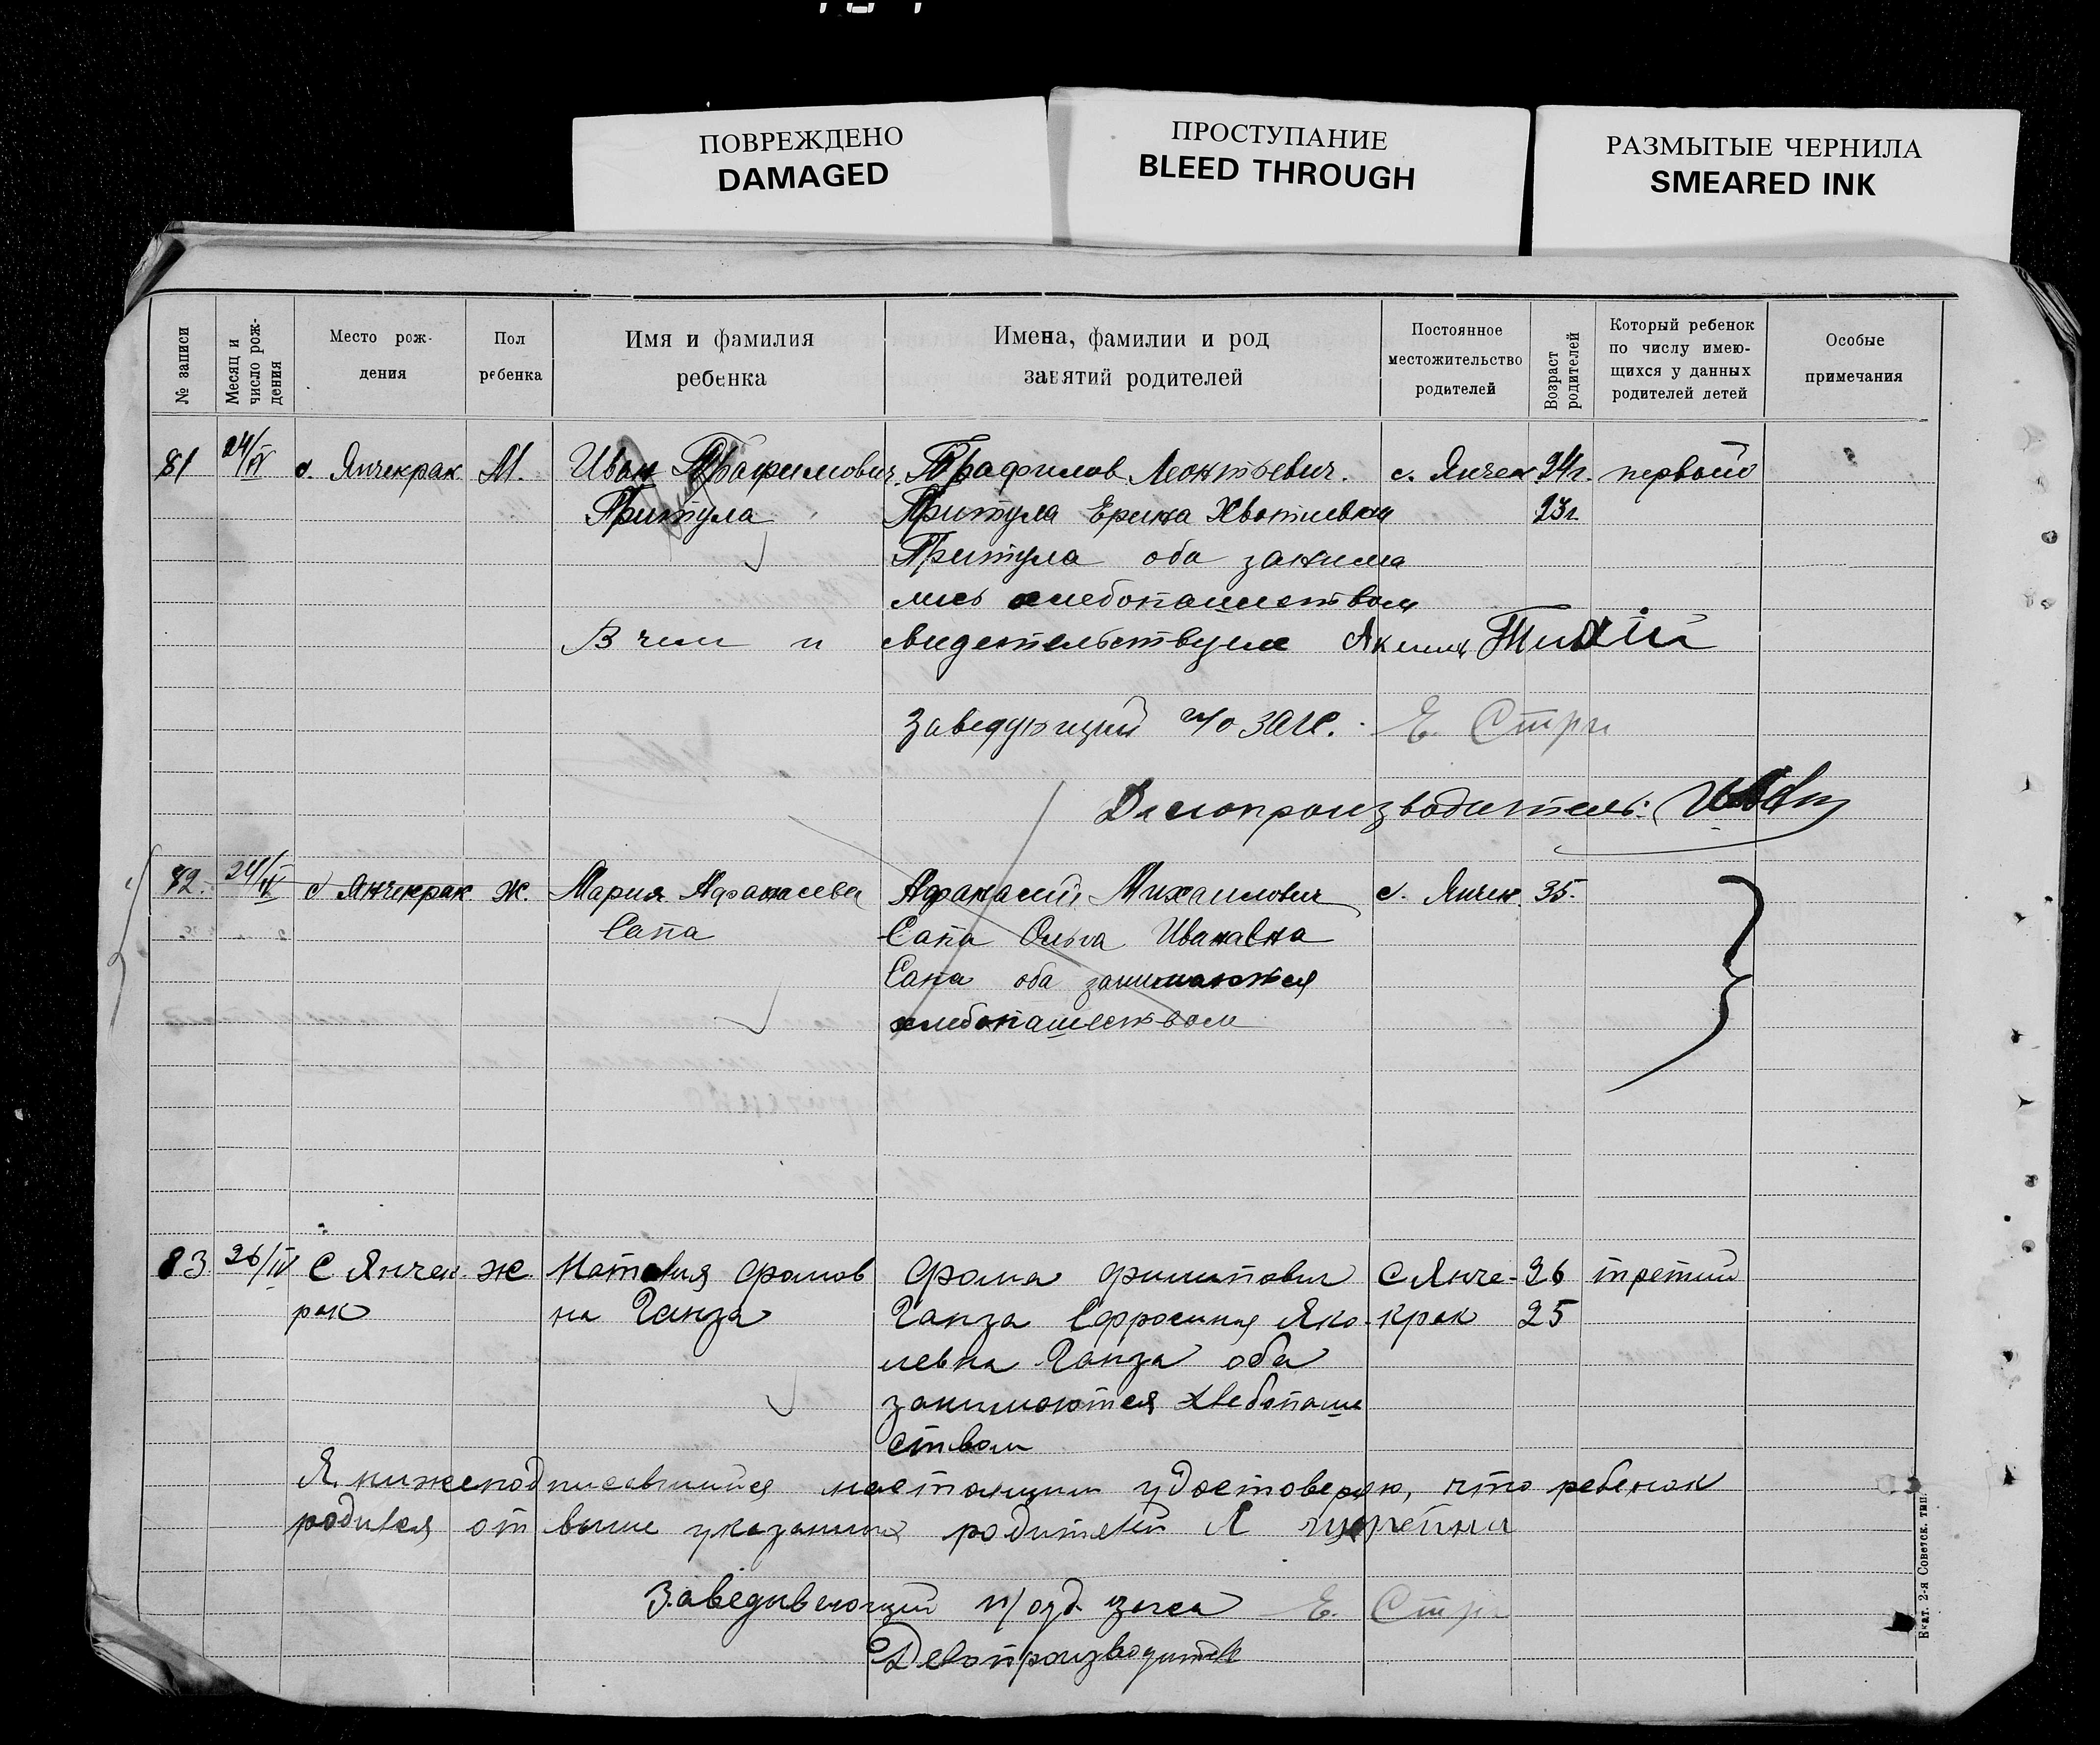 ПОВРЕЖДЕНО
DAMAGED
ПРОСТУПАНИЕ
BLEED THROUGH
РАЗМЫТЫЕ ЧЕРНИЛА
SMEARED INK
№ записи
Месяц и число рож-дения
Место рож-дения
Пол ребенка
Имя и фамилия ребенка
Имена, фамилии и род занятий родителей
Постоянное местожительство родителей
Возраст родителей
Который ребенок по числу имею-щихся у данных родителей детей
Особые примечания
81 24/IV с. Янчекрак М. Иван Трафимович Трафилов Леонтьевич. с. Янчек 24г. первый
Притула Притула Ерина 23г.
Притула оба занима
лись хлебопашеством
В чем и свидетельствуем Яким Тихій
Заведующий п/о загс. Е. Стри
Делопроизводитель:
82. 24/IV с Янчекрак ж. Мария Афанасева Афанасий Михаилович с. Янчек 35.
Сапа Сапа Ольга Ивановна
Сапа оба занимаються
хлебопашеством
83 26/IV с Янчек ж Наталия Фомов Фома Филипович с Янче- 26 третий
рак на Ганза Ганза Ефросиния Яко крак 25
левна Ганза оба
занимаются хлебопаше
ством
Я нижеподписавшийся настоящим удостоверяю, что ребенок
родился от выше указанных родителей Л
Заведивающий п/отд. загса Е. Стри
Делопроизводитель
Екат. 2-я Советск. тип.